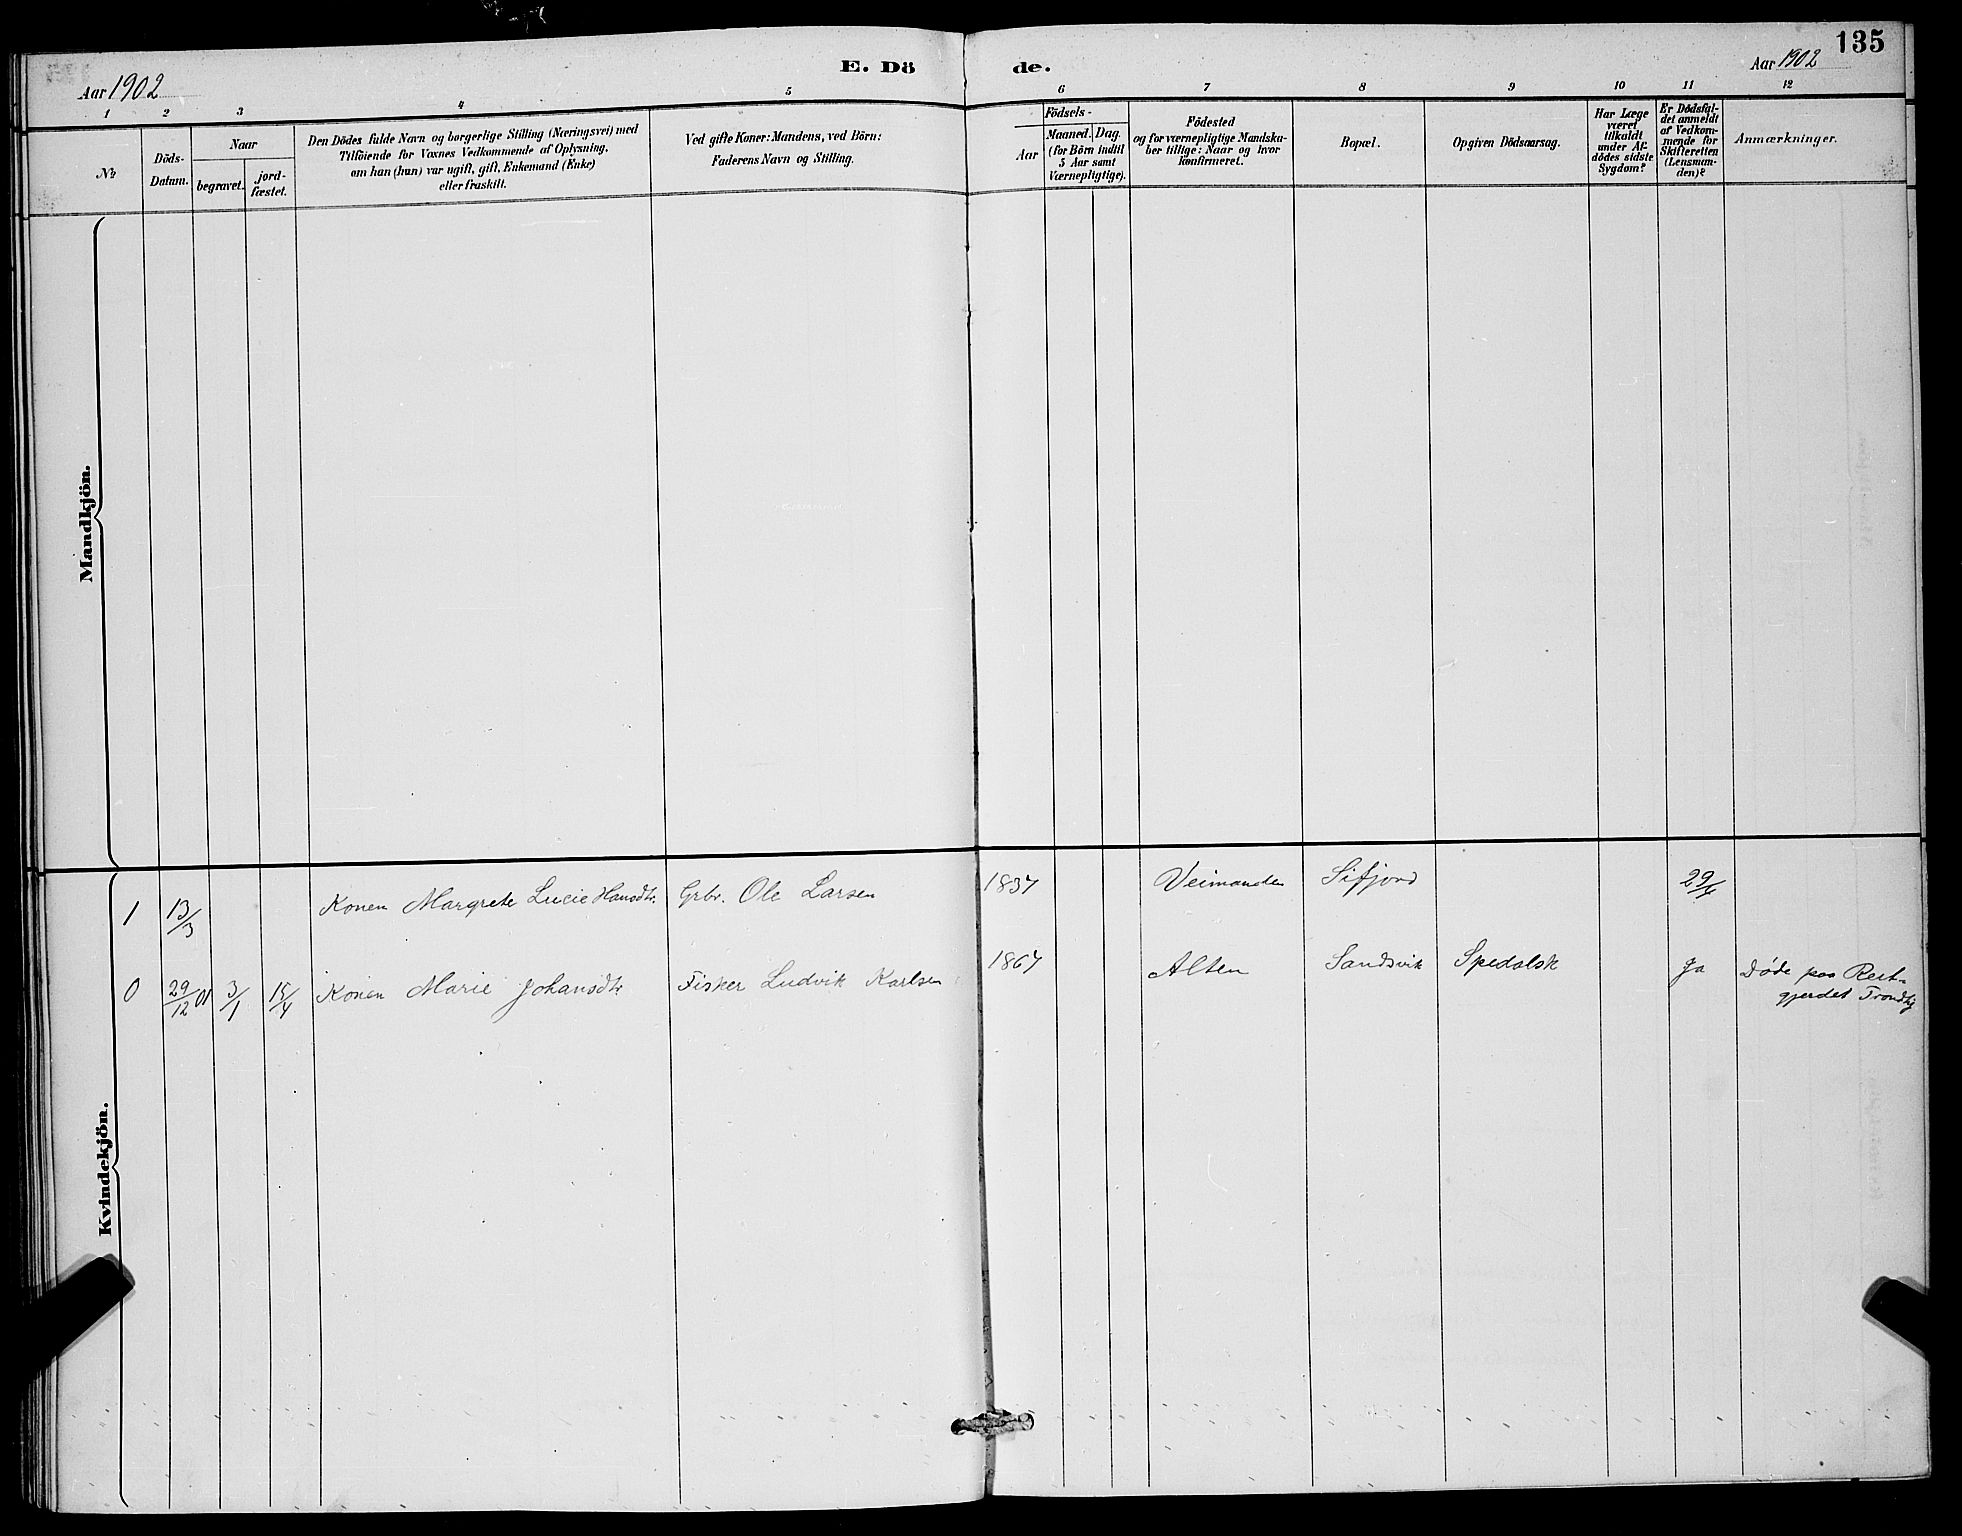 135
E. Dö de.
Aar 1902
Aar 1902
1 2 3 4 5 6 7 8 9 10 11 12
№
Döds-
Datum.
Naar
begravet.
jord-
fæstet.
Den Dödes fulde Navn og borgerlige Stilling (Næringsvei) med
Tilföiende for Voxnes Vedkommende af Oplysning,
om han (hun) var ugift, gift, Enkemand (Enke)
eller fraskilt.
Ved gifte Koner: Mandens, ved Börn:
Faderens Navn og Stilling.
Födsels-
Aar
Maaned.
Dag.
(for Börn indtil
5 Aar samt
Værnepligtige).
Födested
og for værnepligtige Mandska-
ber tillige: Naar og hvor
konfirmeret.
Bopæl.
Opgiven Dödsaarsag.
Har Læge
været
tilkaldt
under Af-
dödes sidste
Sygdom?
Er Dödsfal-
det anmeldt
af Vedkom-
mende for
Skifteretten
(Lensman-
den)?
Anmærkninger.
Mandkjön.
Kvindekjön.
1 13/3 Konen Margrete Lucie Hansdtr. Grbr. Ole Larsen 1837 Veimanden Sifjord 29/4
0 29/12 01 3/1 15/4 Konen Marie Johansdtr Fisker Ludvik Karlsen 1867 Alten Sandsvik Spedalsk Ja Døde paa Reit-
gjerdet Trondhj